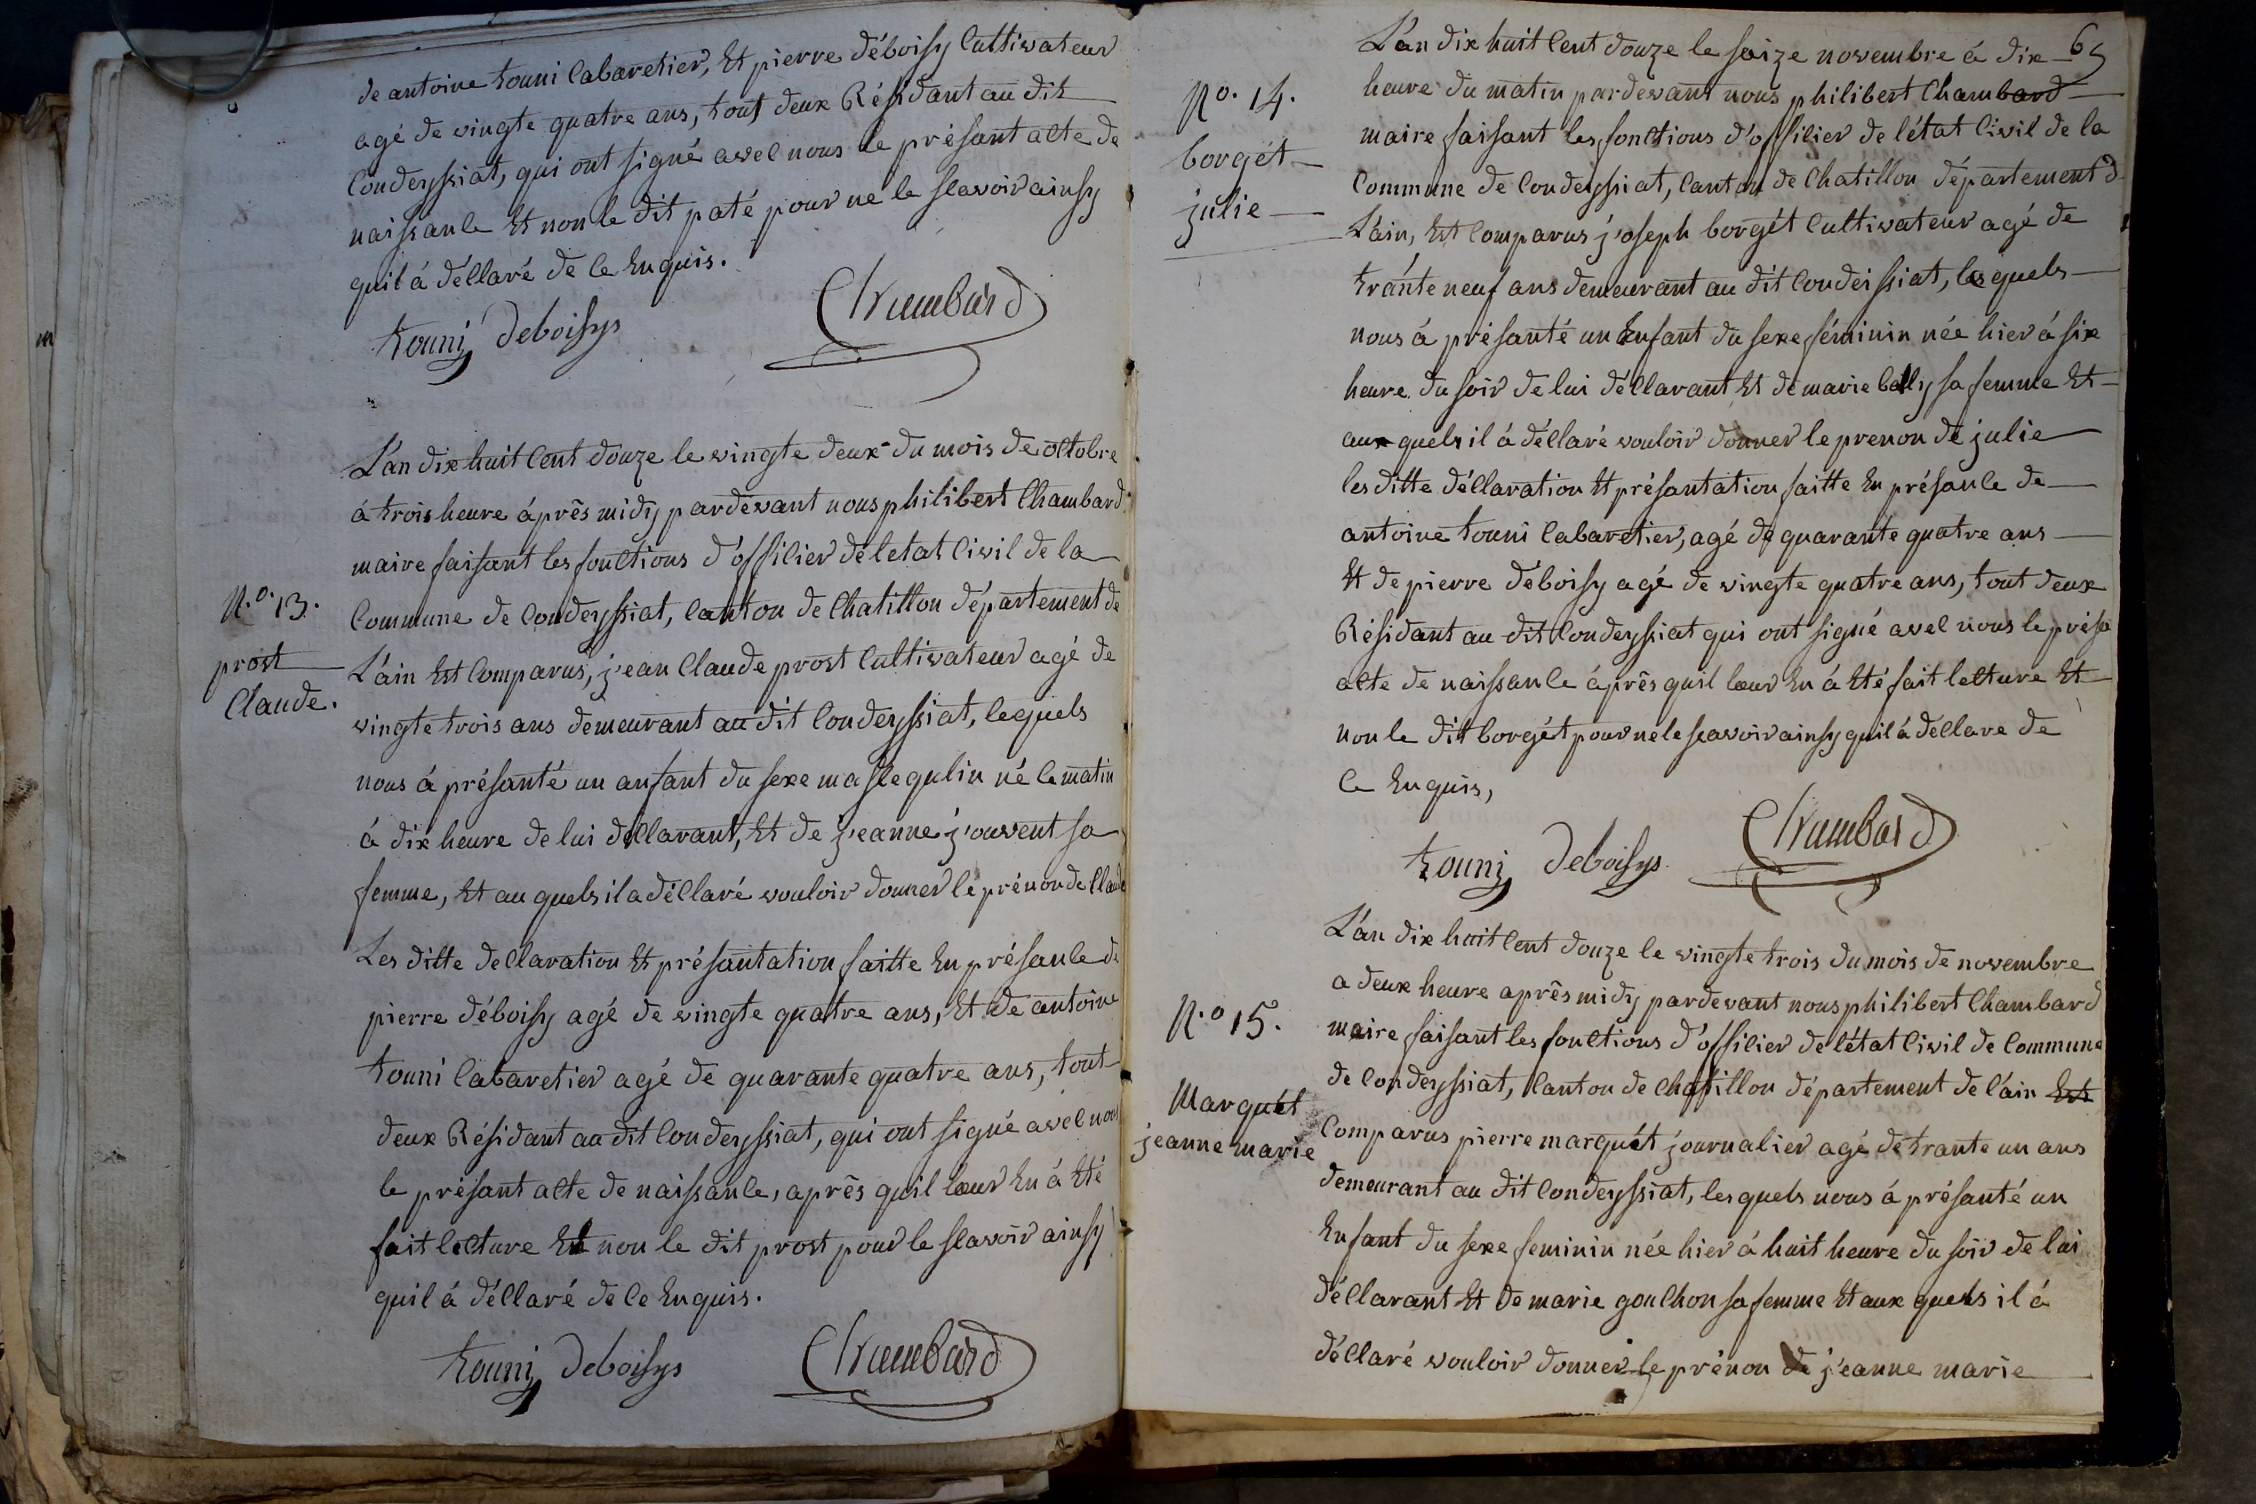 de antoine touni Cabaretier, Et pierre déboisy Cultivateur
agé de vingte quatre ans, tout deux Résidant au dit
Condeyssiat, qui ont signé avec nous le présant acte de
naissance Et non le dit paté pour ne le scavoir ainsy
quil á déclaré de ce Enquis.
touni deboisys Chambard
L'an dix huit Cent douze le vingte deux du mois de octobre
á trois heure áprês midy pardevant nous philibert Chambard
maire faisant les fonctions d'officier de letat Civil de la
N.o. 13.
Commune de Condeyssiat, Canton de Chatillon département de
prost
L'ain Est Comparus, j'ean Claude prost Cultivateur agé de
Claude.
vingte trois ans demeurant au dit Condeyssiat, lequels
nous á présanté un anfant du sexe mascequlin né ce matin
á dix heure de lui déclarant, Et de j'eanne j'ouvent sa
femme, Et au quels il a déclaré vouloir donner le prénon de Claude
Les ditte declaration Et présantation faitte En présance de
pierre déboisy agé de vingte quatre ans, Et de antoine
touni Cabaretier agé de quarante quatre ans, tout
deux Résidant au dit Condeyssiat, qui ont signé avec nous
le présant acte de naissance, aprês quil lœur En á Eté
fait lecture Et non le dit prost pour le scavoir ainsy
quil á déclaré de ce Enquis.
touni deboisys Chambard
L'án dix huit Cent douze le saize novembre á dix 65
N.o. 14.
heure du matin pardevant nous philibert Chambard
maire faisant les fonctions d'officier de l'état Civil de la
borgét
Commune de Condeyssiat, Canton de Chatillon département d
julie
L'áin, Est Comparus j'oseph borgét Cultivateur agé de
tránte neuf ans demeurant au dit Condeissiat, les quels
nous á présanté un Enfant du sexe féminin née hier á six
heure du soir de lui déclarant Et de marie belly sa femme Et
aux quels il á déclaré vouloir donner le prenon de julie
les ditte déclaration Et présantation faitte En présance de
antoine touni Cabaretier, agé de quarante quatre ans
Et de pierre déboisy agé de vingte quatre ans, tout deux
Résidant au dit Condeyssiat qui ont signé avec nous le présa
acte de naissance áprês quil lœur En á Eté fait lecture Et
non le dit borgét pour ne le scavoir ainsy quil á déclare de
ce Enquis,
touni deboisys Chambard
L'án dix huit Cent douze le vingte trois du mois de novembre
a deux heure aprês midy pardevant nous philibert Chambard
N.o 15.
maire faisant les fonctions d'officier de l'état Civil de Commune
de Condeyssiat, Canton de Chatillon département de l'ain Est
Marquét
Comparus pierre marquét journalier agé de trante un ans
jeanne marie
demeurant au dit Condeyssiat, les quels nous á présanté un
Enfant du sexe feminin née hier á huit heure du soir de lui
déclarant Et de marie gonChon sa femme Et aux quels il á
déclaré vouloir donner le prénon de j'eanne marie